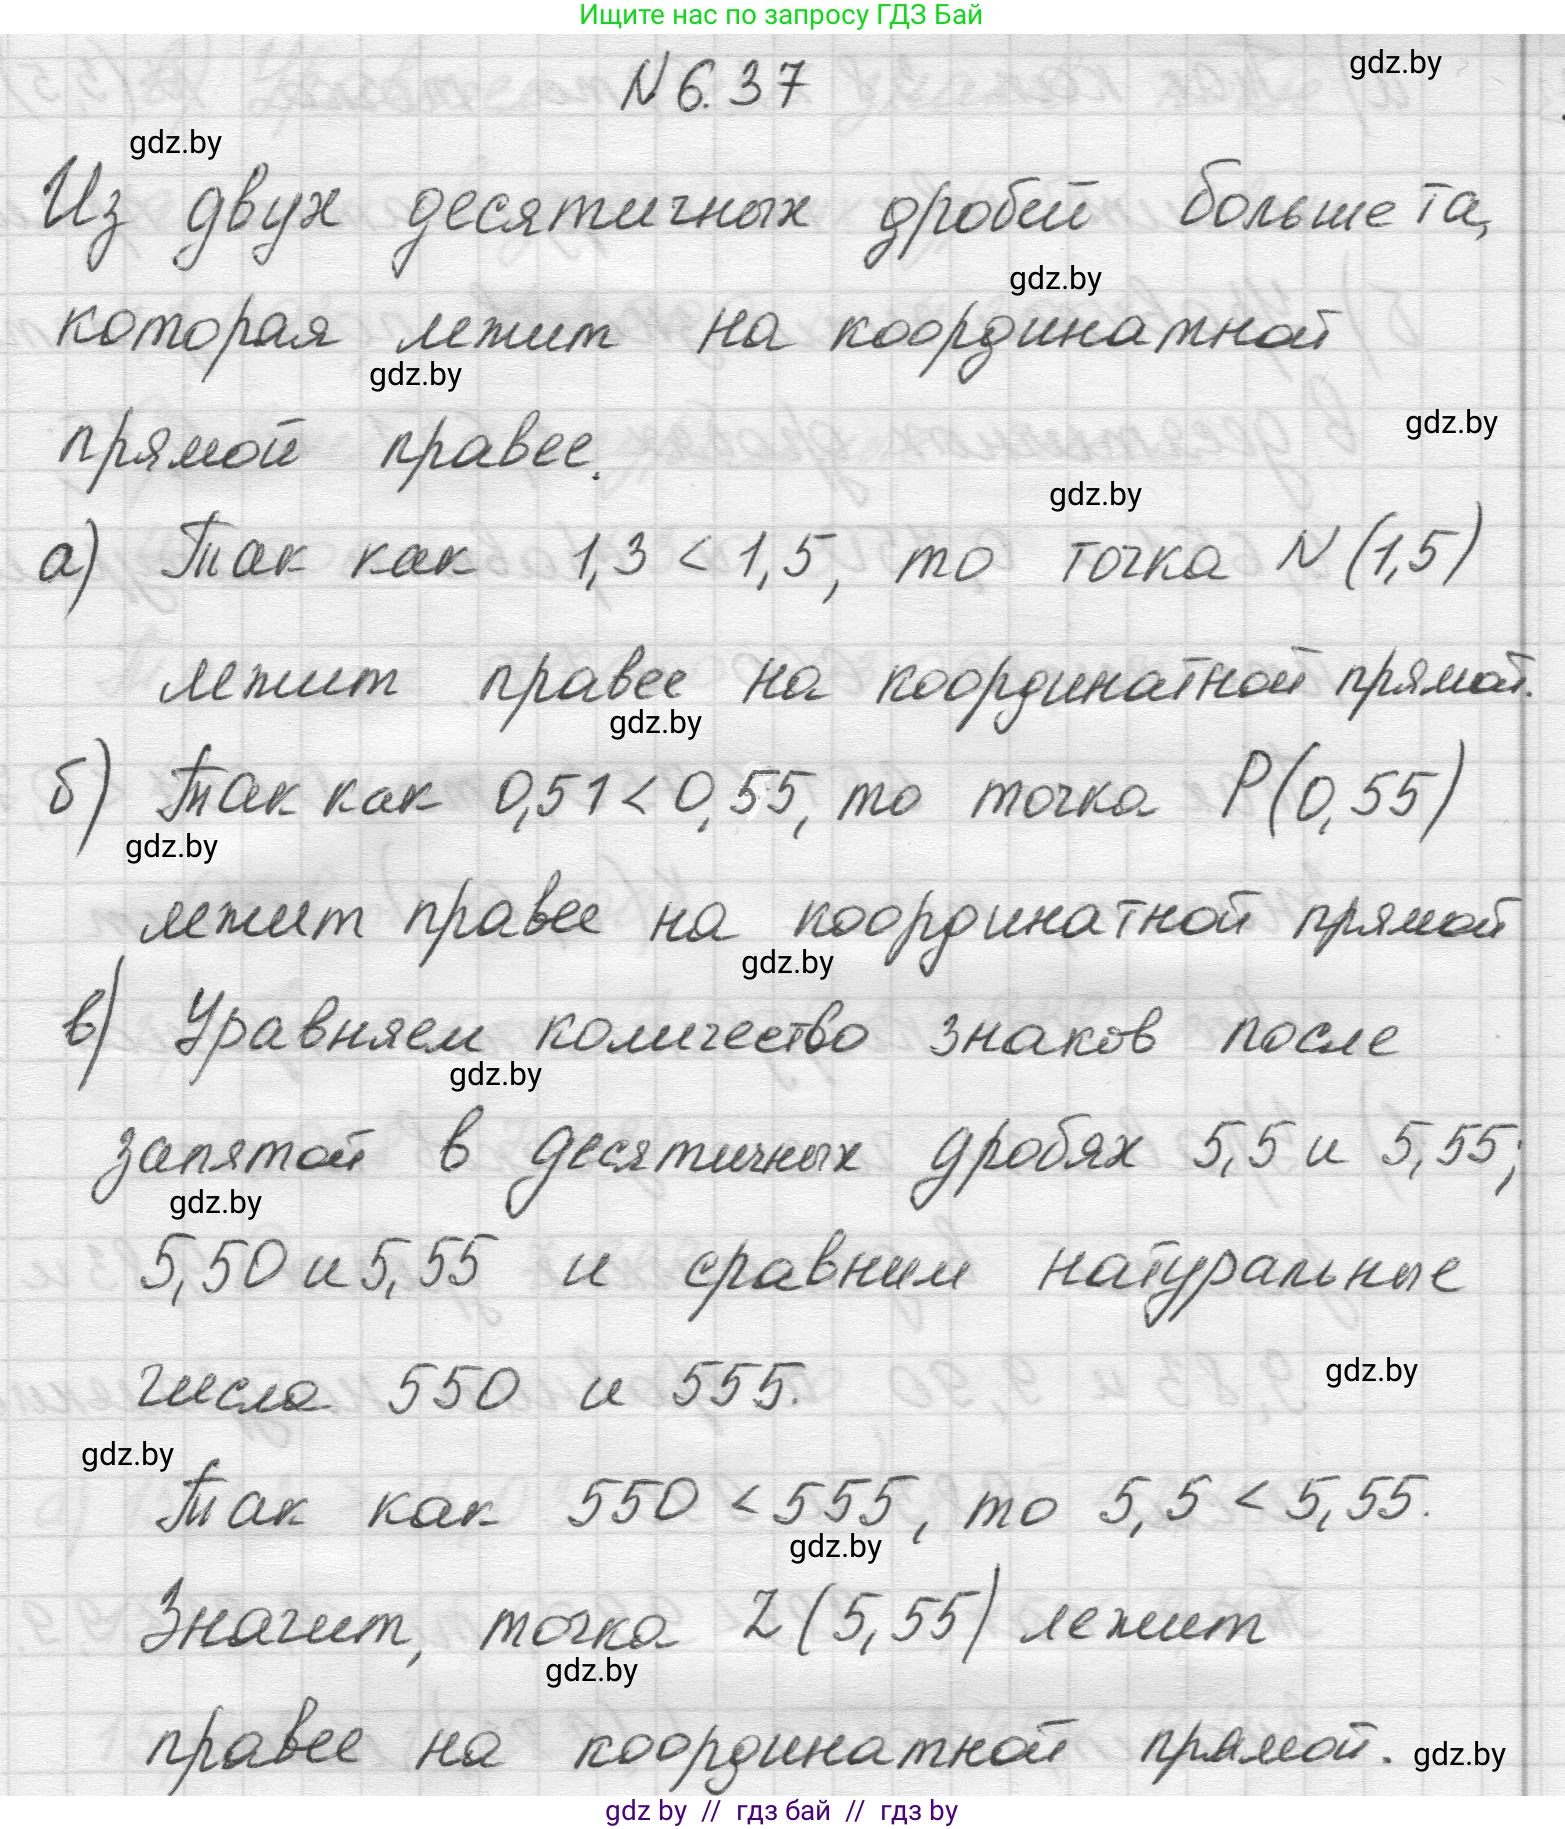 Ищите нас по запросу ГДЗ Бай
N 6.37
gdz.by
gdz.by
Из двух десятичных дробей больше та,
gdz.by
которая лежит на координатной
gdz.by
прямой правее.
gdz.by
gdz.by
а) Так как 1,3 < 1,5, то точка N (1,5)
лежит правее на координатной прямой.
gdz.by
б) Так как 0,51 < 0,55, то точка P(0,55)
gdz.by
лежит правее на координатной прямой
gdz.by
в) Уравняем количество знаков после
gdz.by
запятой в десятичных дробях 5,5 и 5,55;
gdz.by
5,50 и 5,55 и сравним натуральные
числа 550 и 555.
gdz.by
gdz.by
Так как 550 < 555, то 5,5 < 5,55.
gdz.by
Значит, точка Z (5,55) лежит
gdz.by
правее на координатной прямой.
gdz.by
gdz by // гдз бай // гдз by